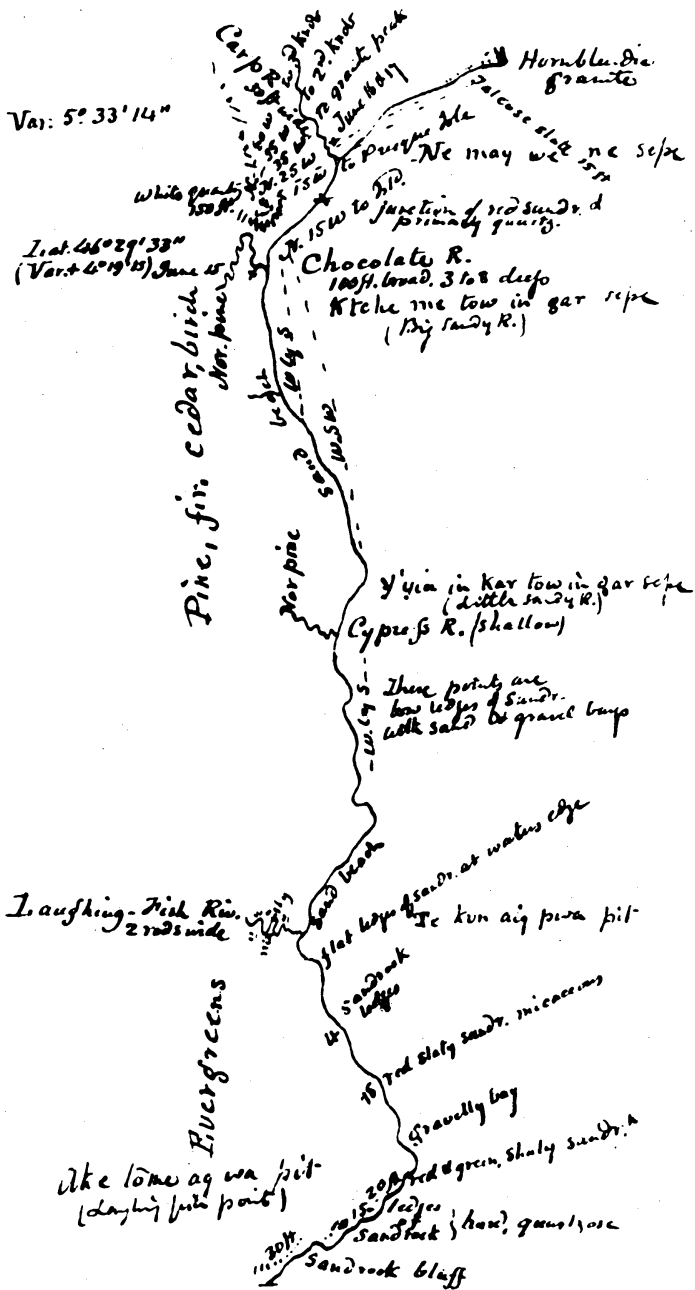 Carp R.
30 ft. wide
W. 3d. Knob
to 2d. Knob
to granite peak
June 16 & 17
Hornblendic
granite
Talcose slate
15 ft
Var: 5° 33' 14"
to Presque Isle
Ne may we ne sepe
White quartz
150 ft.
35 W
25 W
15 W
N. 15 W to pt.
junction of red sandr. &
primary quartz.
Lat. 46° 29' 33"
(Var. + 4° 19' 15) June 15
Chocolate R.
100 ft. broad. 3 to 8 deep
Ktche me tow in gar sepe
(Big Sandy R.)
Nor. pine
Pine, fir. cedar, birch
W by S
beach
W.S.W.
Sand
Nor pine
Y'yia in kar tow in gar sepe
(Little Sandy R.)
Cypress R. (shallow)
W. by S
These points are
low ledges of sandr.
with sand & gravel bays
Sand beach
flat ledges of sandr. at waters edge
Laughing-Fish Riv.
2 rods wide
Te kun aig pwa pit
Sandrock
ledges
4
Evergreens
15
red slaty sandr. micaceous
Gravelly bay
Ake tome ag wa pit
(Laughing fish point)
20 ft red & green, shaly sandr.
10 15 ledges
of
Sandrock } hard, quartzose
30 ft
Sandrock bluff